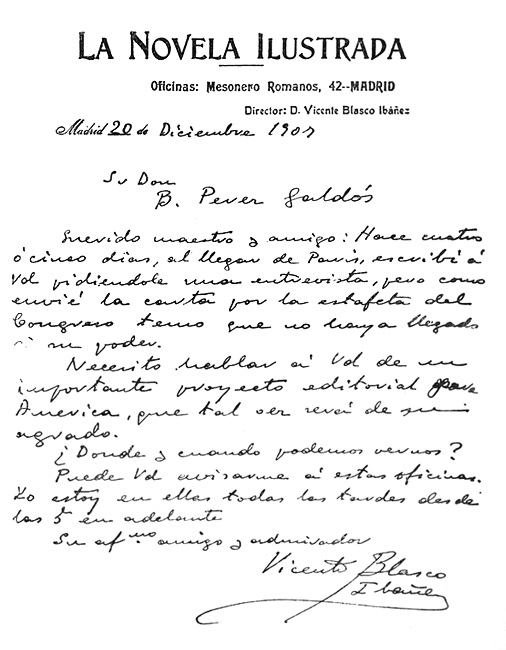 LA NOVELA ILUSTRADA
Oficinas: Mesonero Romanos, 42--MADRID
Director: D. Vicente Blasco Ibáñez
Madrid 20 de Diciembre 1907
Sr Don
B. Perez Galdós
Querido maestro y amigo: Hace cuatro
ó cinco dias, al llegar de Paris, escribí á
Vd pidiendole una entrevista, pero como
envié la carta por la estafeta del
Congreso temo que no haya llegado
á su poder.
Necesito hablar á Vd de un
importante proyecto editorial para
America, que tal vez será de su
agrado.
¿Donde y cuando podemos vernos?
Puede Vd avisarme á estas oficinas.
Yo estoy en ellas todas las tardes desde
las 5 en adelante
Su af.mo amigo y admirador
Vicente Blasco
Ibañez